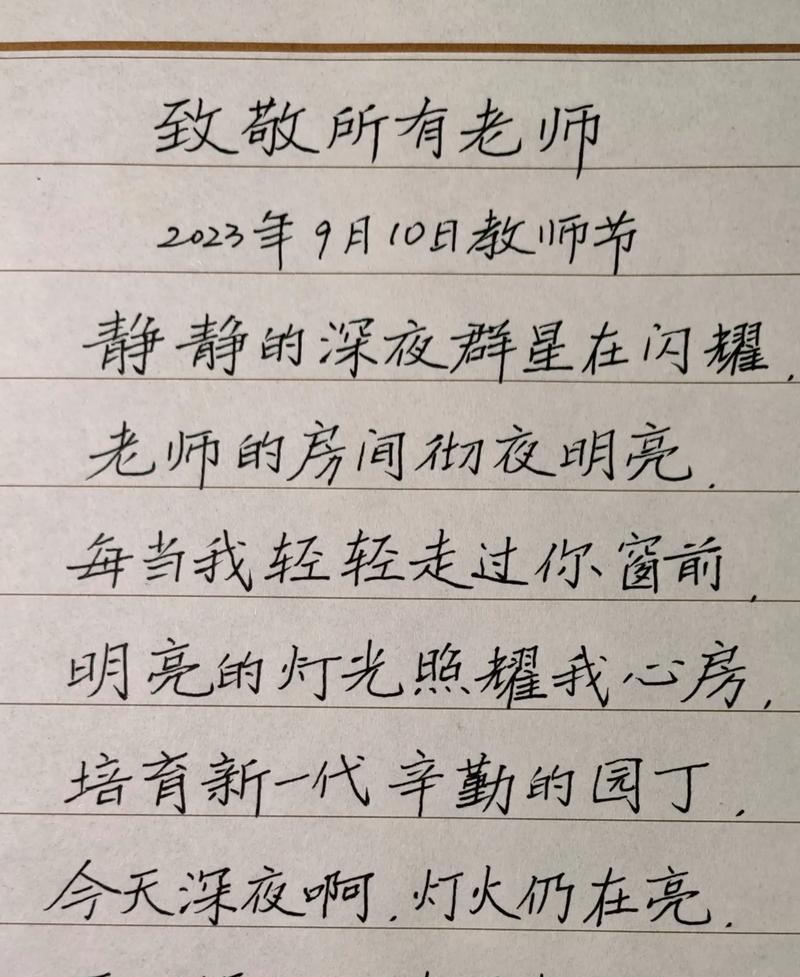 致敬所有老师
2023年9月10日教师节
静静的深夜群星在闪耀,
老师的房间彻夜明亮.
每当我轻轻走过你窗前,
明亮的灯光照耀我心房,
培育新一代辛勤的园丁,
今天深夜啊,灯火仍在亮.